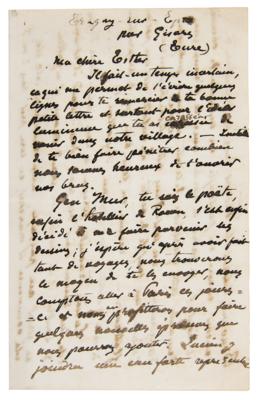 Eragny-sur-Epte
par Gisors
(Eure)
Ma chère Esther
Il fait un temps incertain,
ce qui me permet de t'écrire quelques
lignes pour te remercier de ta bonne
petite lettre et surtout pour l'idée
lumineuse que tu as caressée de
venir dans notre village. — Inutile
de te bien faire pénétrer combien
nous serons heureux de t'avoir
nos bras.
tu sais le poëte,
enfin l'hôtelier de Rouen s'est enfin
décidé à me faire parvenir les
dessins, j'espère qu'après avoir fait
tant de voyages, nous trouverons
le moyen de te les envoyer, nous
comptons aller à Paris ces jours-
ci et nous profiterons pour faire
quelques nouvelles épreuves que
nous pourrons ajouter. Lucien y
joindra une eau forte